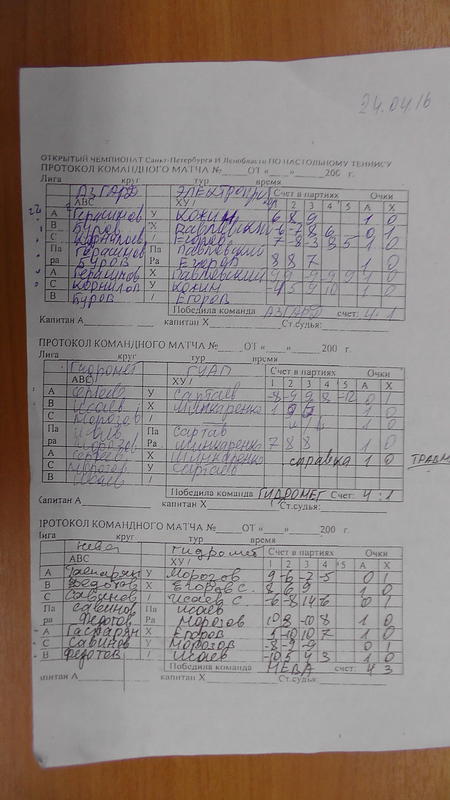 24.04.16
ОТКРЫТЫЙ ЧЕМПИОНАТ Санкт-Петербурга И Ленобласти ПО НАСТОЛЬНОМУ ТЕННИСУ
ПРОТОКОЛ КОМАНДНОГО МАТЧА №____ ОТ «___»______200 г.
Лига круг тур время
АЗГАРД Счет в партиях Очки
АВС ХУ/ 1 2 3 4 5 А Х
А Герашнов У Кожин 6 8 9 1 0
В Буров Х Павловский -6 -7 8 6 0 1
С Корнилов / Егоров 7 -8 -3 8 5 1 0
Па Герашнов Па Павловский
ра Буров Ра Егоров 8 8 7 1 0
А Герашнов Х Павловский
С Корнилов У Кожин -4 5 9 10 1 0
В Буров / Егоров
Победила команда АЗГАРД счет: 4:1
Капитан А капитан Х Ст.судья:
ПРОТОКОЛ КОМАНДНОГО МАТЧА №____ ОТ «___»______200 г.
Лига круг тур время
Гидромет ГУАП Счет в партиях Очки
АВС ХУ/ 1 2 3 4 5 А Х
А Сергеев У Сартаев -8 -9 9 8 -12 0 1
В Исаев Х Шинкаренко 1 9 7 1 0
С Морозов / 1 0
Па Исаев Па Сартаев
ра Морозов Ра Шинкаренко 7 8 8 1 0
А Сергеев Х Шинкаренко справка 1 0
С Морозов У Сартаев
В Исаев /
Победила команда ГИДРОМЕТ Счет: 4:1
Капитан А капитан Х Ст.судья:
ПРОТОКОЛ КОМАНДНОГО МАТЧА №____ ОТ «___»______200 г.
Лига круг тур время
Нева Гидромет Счет в партиях Очки
АВС ХУ/ 1 2 3 4 5 А Х
А Гаспарян У Морозов 9 -6 -2 -5 0 1
В Федотов Х Егоров С. 8 6 9 1 0
С Савинов / Исаев С. -6 -8 14 -6 0 1
Па Савинов Па Исаев
ра Федотов Ра Морозов 10 8 -10 8 1 0
А Гаспарян Х Егоров 5 -10 10 7 1 0
С Савинов У Морозов -8 -9 -9 0 1
В Федотов / Исаев -10 5 4 3 1 0
Победила команда НЕВА счет: 4 3
капитан Х Ст.судья: